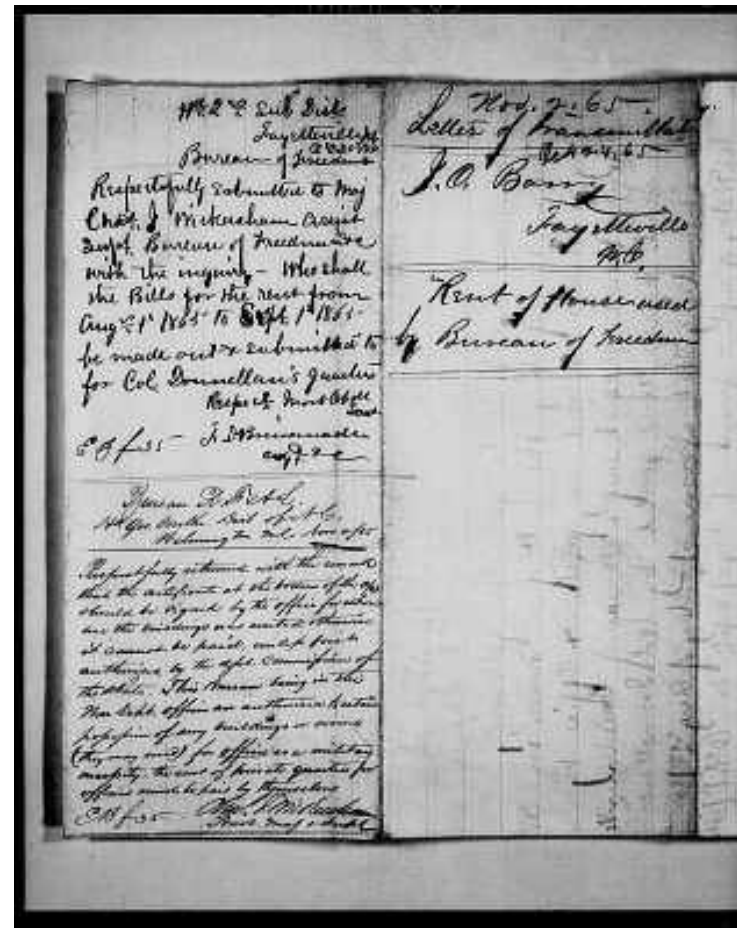 Hd. Qrs 2nd Sub Dist
Fayetteville
Bureau of Freedmen
Respectfully submitted to Maj
Chas. J Wickersham Assist
Supt. Bureau of Freedmen
with the inquiry – Who shall
the Bills for the rent from
Augst 1st 1865 to Sept 1st 1865
be made out & submitted to
for Col Donnellan's Quarters
Respect Most Obdt
Bureau R. F. & A. L.
Respectfully returned with the remark
that the certificate at the bottom of the
should be signed by the officer for whom
are the buildings
it cannot be paid, unless
authorized by the asst. Commissioner of
the State. This Bureau being in the
War Dept. officers are authorized to retain
possession of any buildings or rooms
(they may need) for offices as a military
necessity. the rent of private quarters for
officers must be paid by themselves
Nov. 2. 65
Letter of Transmittal
Oct 24. 65
J. O. Barry
Fayetteville
N.C.
Rent of House used
by Bureau of Freedmen